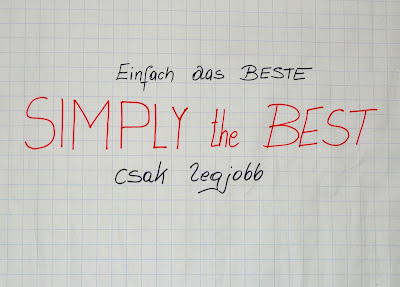 Einfach das BESTE
SIMPLY the BEST
csak legjobb